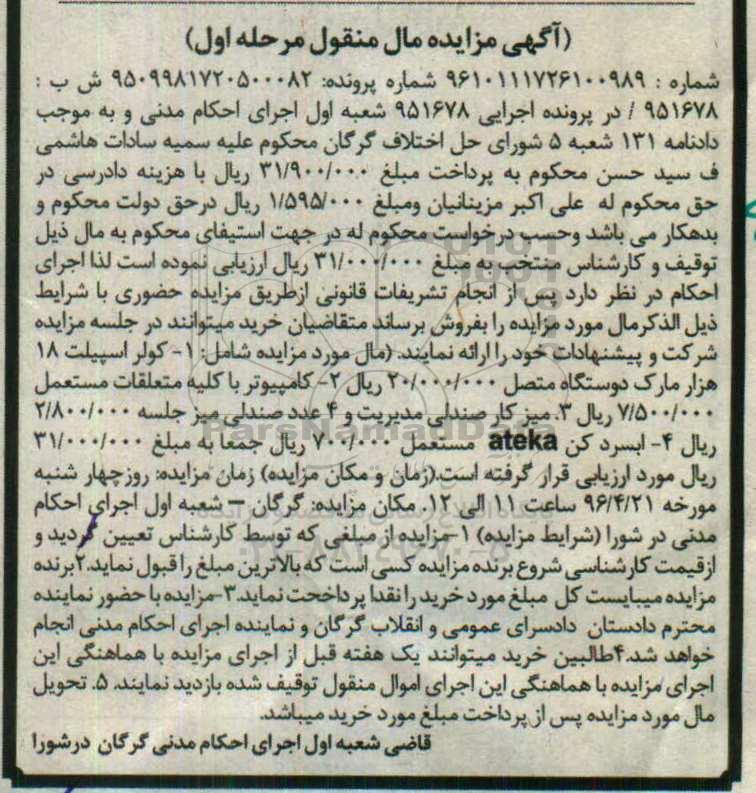 (آگهی مزایده مال منقول مرحله اول)
شماره : ۹۶۱۰۱۱۱۷۲۶۱۰۰۹۸۹ شماره پرونده: ۹۵۰۹۹۸۱۷۲۰۵۰۰۰۸۲ ش ب :
۹۵۱۶۷۸ / در پرونده اجرایی ۹۵۱۶۷۸ شعبه اول اجرای احکام مدنی و به موجب
دادنامه ۱۳۱ شعبه ۵ شورای حل اختلاف گرگان محکوم علیه سمیه سادات هاشمی
ف سید حسن محکوم به پرداخت مبلغ ۳۱/۹۰۰/۰۰۰ ریال با هزینه دادرسی در
حق محکوم له علی اکبر مزینانیان ومبلغ ۱/۵۹۵/۰۰۰ ریال درحق دولت محکوم و
بدهکار می باشد وحسب درخواست محکوم له در جهت استیفای محکوم به مال ذیل
توقیف و کارشناس منتخب به مبلغ ۳۱/۰۰۰/۰۰۰ ریال ارزیابی نموده است لذا اجرای
احکام در نظر دارد پس از انجام تشریفات قانونی ازطریق مزایده حضوری با شرایط
ذیل الذکرمال مورد مزایده را بفروش برساند متقاضیان خرید میتوانند در جلسه مزایده
شرکت و پیشنهادات خود را ارائه نمایند. (مال مورد مزایده شامل: ۱- کولر اسپیلت ۱۸
هزار مارک دوستگاه متصل ۲۰/۰۰۰/۰۰۰ ریال ۲- کامپیوتر با کلیه متعلقات مستعمل
۷/۵۰۰/۰۰۰ ریال ۳. میز کار صندلی مدیریت و ۴ عدد صندلی میز جلسه ۲/۸۰۰/۰۰۰
ریال ۴- ابسرد کن ateka مستعمل ۷۰۰/۰۰۰ ریال جمعا به مبلغ ۳۱/۰۰۰/۰۰۰
ریال مورد ارزیابی قرار گرفته است.(زمان و مکان مزایده) زمان مزایده: روزچهار شنبه
مورخه ۹۶/۴/۲۱ ساعت ۱۱ الی ۱۲. مکان مزایده: گرگان – شعبه اول اجرای احکام
مدنی در شورا (شرایط مزایده) ۱-مزایده از مبلغی که توسط کارشناس تعیین گردید و
ازقیمت کارشناسی شروع برنده مزایده کسی است که بالاترین مبلغ را قبول نماید.۲برنده
مزایده میبایست کل مبلغ مورد خرید را نقدا پرداخحت نماید.۳-مزایده با حضور نماینده
محترم دادستان دادسرای عمومی و انقلاب گرگان و نماینده اجرای احکام مدنی انجام
خواهد شد.۴طالبین خرید میتوانند یک هفته قبل از اجرای مزایده با هماهنگی این
اجرای مزایده با هماهنگی این اجرای اموال منقول توقیف شده بازدید نمایند. ۵. تحویل
مال مورد مزایده پس از پرداخت مبلغ مورد خرید میباشد.
قاضی شعبه اول اجرای احکام مدنی گرگان درشورا
ParsNamadData